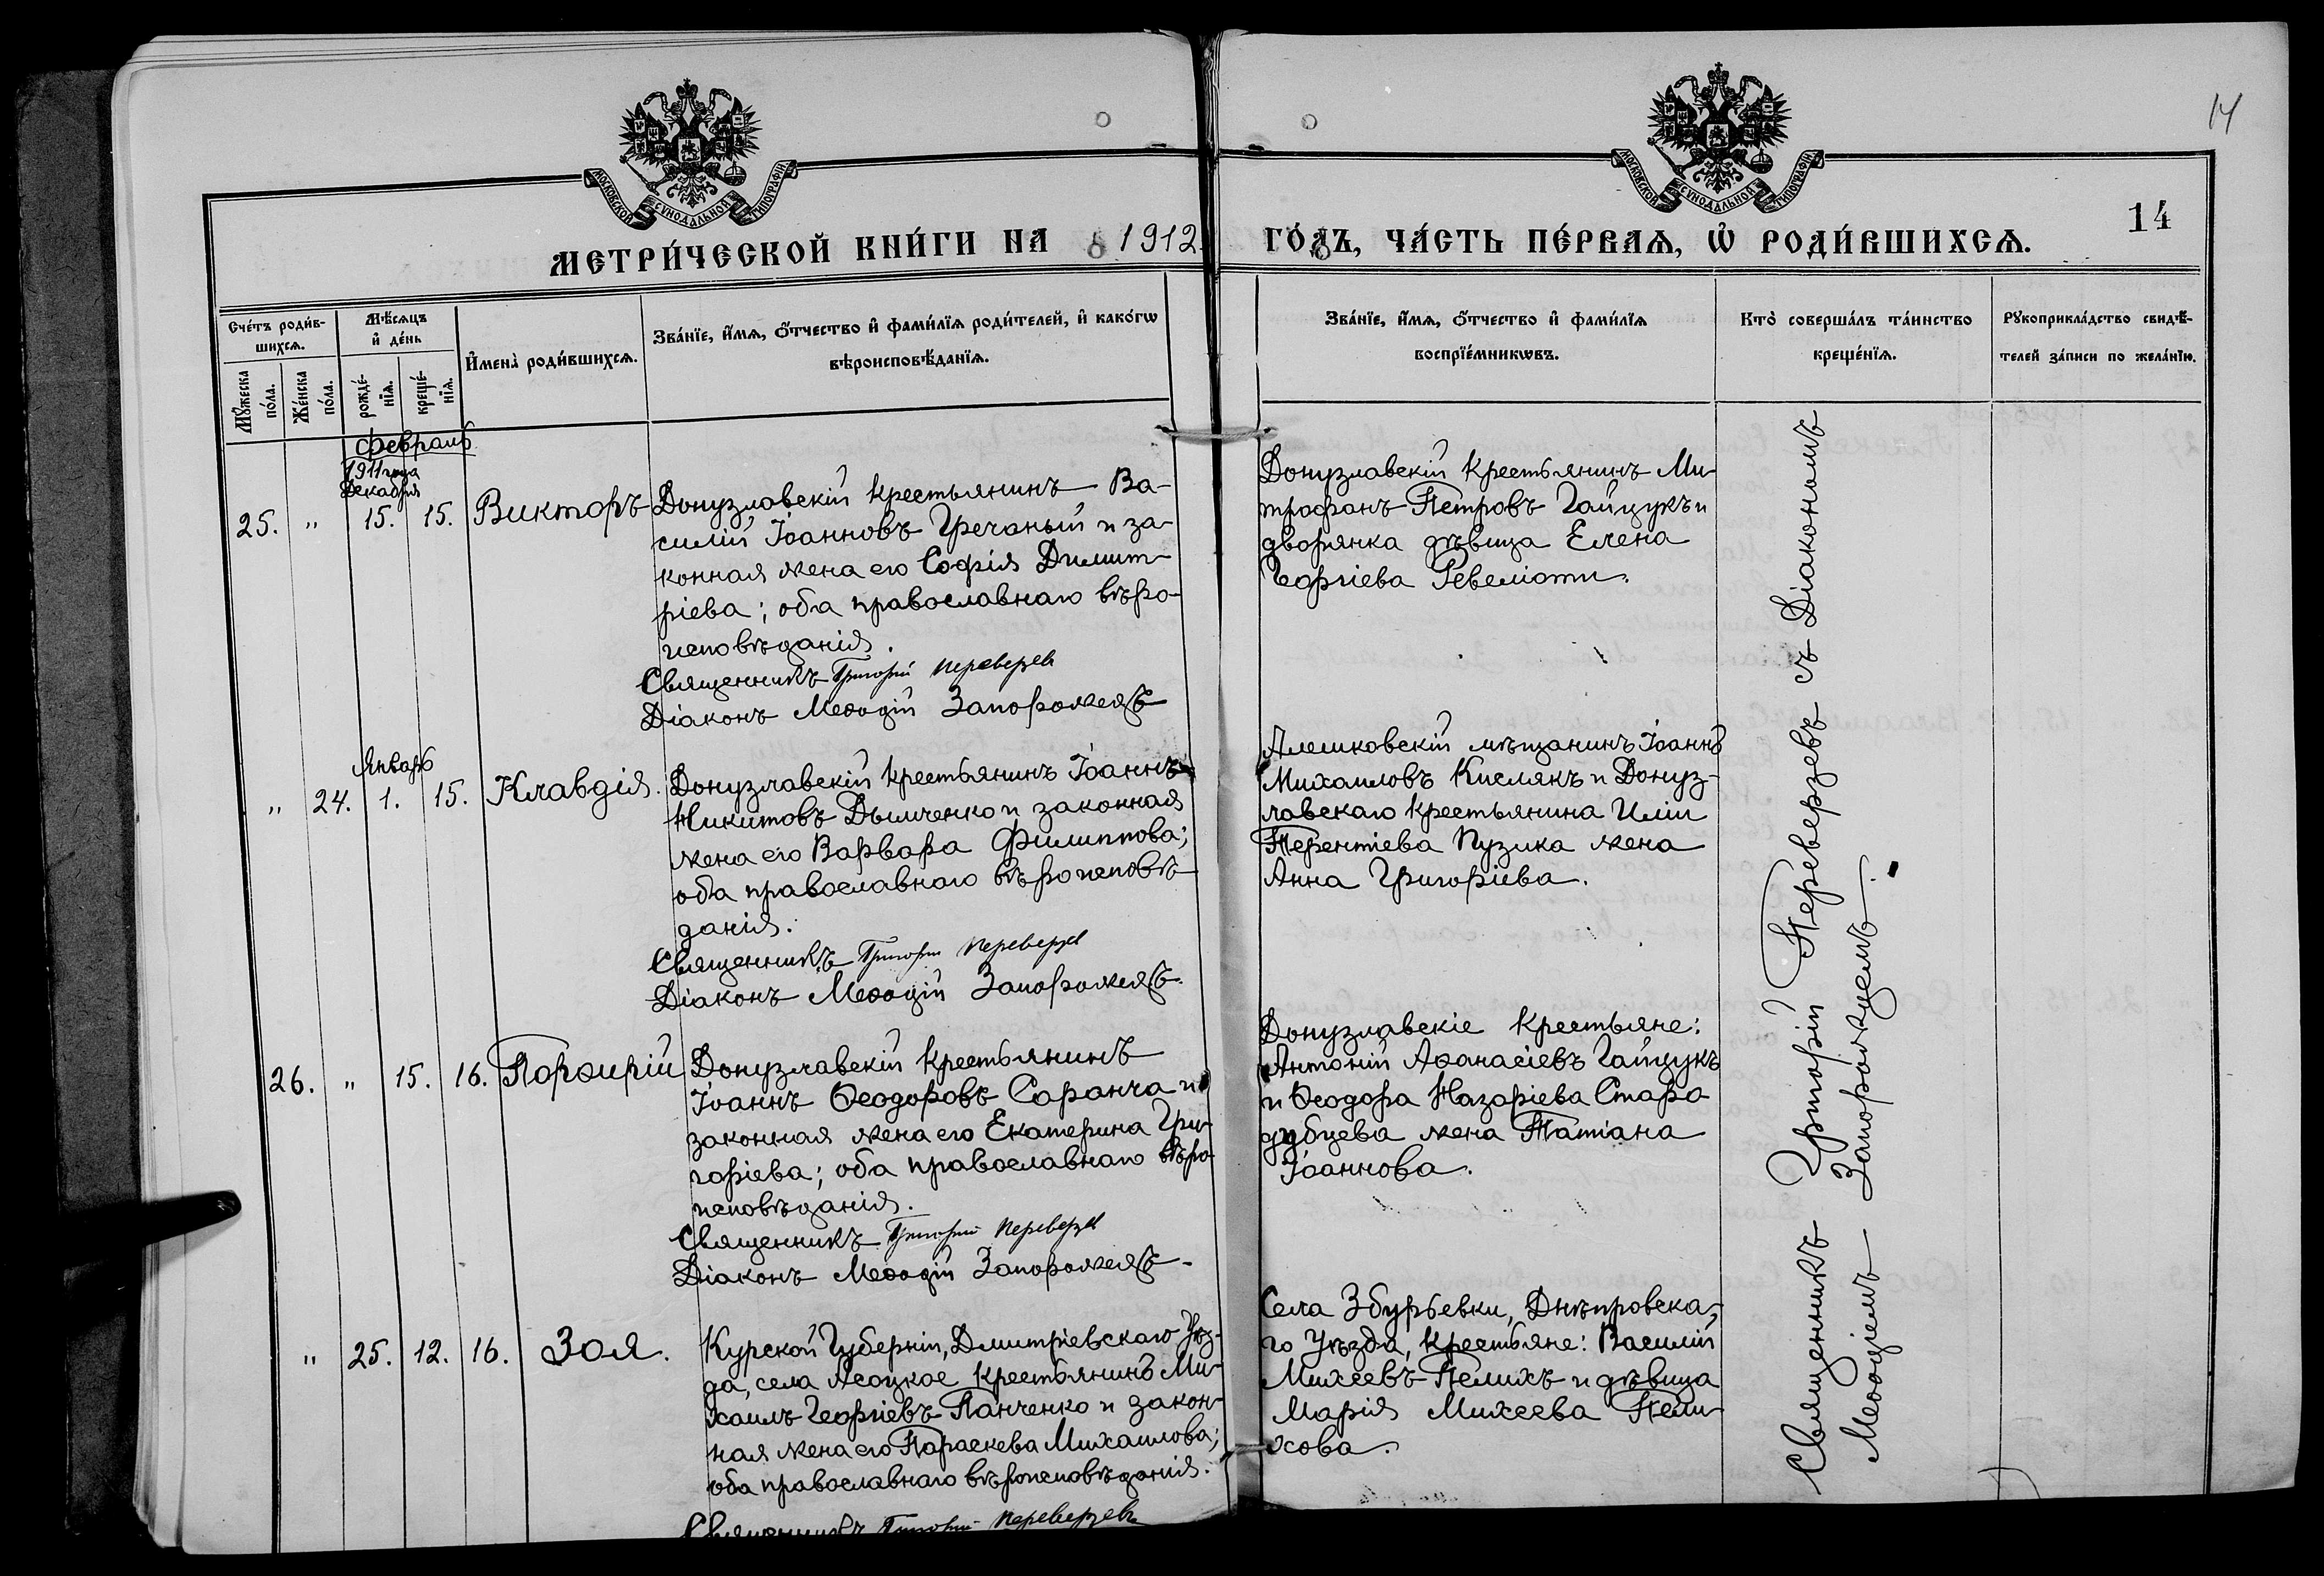 14
МОСКОВСКОЙ СѴНОДАЛЬНОЙ ТИПОГРАФІИ
МОСКОВСКОЙ СѴНОДАЛЬНОЙ ТИПОГРАФІИ
14
МЕТРИ́ЧЕСКОЙ КНИ́ГИ НА 1912
ГО́ДЪ, ЧА́СТЬ ПЕ́РВАѦ, Ѡ҆ РОДИ́ВШИХСѦ.
Сче́тъ роди́в-
шихсѧ.
Мѣ́сѧцъ
и҆ де́нь
Мꙋ́жеска
по́ла.
Же́нска
по́ла.
рожде́-
нїѧ.
креще́-
нїѧ.
И҆мена̀ роди́вшихсѧ.
Зва́нїе, и҆́мѧ, ѻ҆́тчество и҆ фами́лїѧ роди́телей, и҆ како́гѡ
вѣроисповѣ́данїѧ.
Зва́нїе, и҆́мѧ, ѻ҆́тчество и҆ фами́лїѧ
воспрїе́мникѡвъ.
Кто̀ соверша́лъ та́инство
креще́нїѧ.
Рꙋкоприкла́дство свидѣ́-
телей за́писи по жела́нїю.
Февраль
1911 года
Декабря
25. " 15. 15. Викторъ
Донузлавскій крестьянинъ Ва-
силій Іоанновъ Гречаный и за-
конная жена его Софія Димит-
ріева; оба православнаго вѣро-
исповѣданія.
Священникъ Григорій Переверзев
Діаконъ Меѳодій Запорожецъ
Донузлавскій крестьянинъ Ми-
трофанъ Петровъ Гайдукъ и
дворянка дѣвица Елена
Георгіева Ревеліоти.
Январь
" 24. 1. 15. Клавдія.
Донузлавскій крестьянинъ Іоаннъ
Никитовъ Дымченко и законная
жена его Варвара Филиппова;
оба православнаго вѣроисповѣ-
данія.
Священникъ Григорій Переверзев
Діаконъ Меѳодій Запорожецъ.
Алешковскій мѣщанинъ Іоаннъ
Михаиловъ Кислякъ и Донуз-
лавскаго крестьянина Иліи
Терентіева Пузика жена
Анна Григоріева.
26. " 15. 16. Порфирій
Донузлавскій крестьянинъ
Іоаннъ Ѳеодоровъ Саранча и
законная жена его Екатерина Гри-
горіева; оба православнаго вѣро-
исповѣданія.
Священникъ Григорій Переверзев
Діаконъ Меѳодій Запорожецъ.
Донузлавскіе крестьяне:
Антоній Аѳанасіевъ Гайдукъ
и Ѳеодора Назаріева Старо
дубцева жена Татіана
Іоаннова.
" 25. 12. 16. Зоя.
Курской Губерніи, Дмитріевскаго Уѣз-
да, села крестьянинъ Ми-
хаилъ Георгіевъ Панченко и закон-
ная жена его Параскева Михаилова;
оба православнаго вѣроисповѣданія.
Священникъ Григорій Переверзевъ
Села Збурьевки, Днѣпровска-
го Уѣзда, крестьяне: Василій
Михеевъ Пелихъ и дѣвица
Марія Михеева Пели-
хова.
Священникъ Григорій Переверзевъ съ Діакономъ
Меѳодіемъ Запорожцемъ.